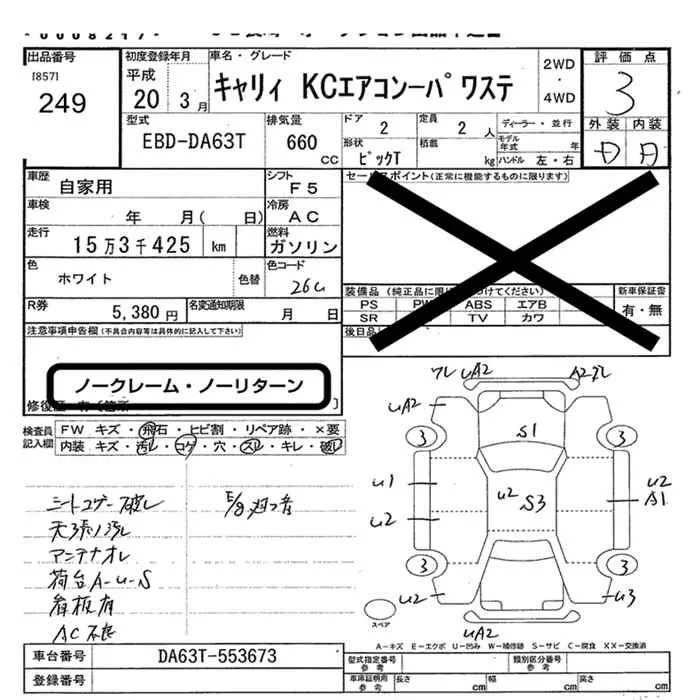 出品番号
[857]
249
初度登録年月
平成
20 3月
車名・グレード
キャリィ KCエアコン-パワステ
2WD
・
4WD
評価点
3
外装 内装
D D
型式
EBD-DA63T
排気量
660
CC
ドア
2
定員
2 人
ディーラー・並行
モデル年式 年
形状
ピックT
積載
kg
ハンドル 左・右
車歴
自家用
シフト
F5
車検
年 月( 日)
冷房
AC
走行
15万3千425 km
燃料
ガソリン
色
ホワイト
色替
色コード
26U
R券
5,380円
名変通知期限
月 日
セールスポイント(正常に機能するものに限ります)
新車保証書
有・無
PS ABS エアB
SR TV カワ
注意事項申告欄(不具合内容等は具体的に記入して下さい)
ノークレーム・ノーリターン
検査員
記入欄
FW キズ・飛石・ヒビ割・リペア跡・×要
内装 キズ・汚レ・コゲ・穴・スレ・キレ・破レ
シートコゲー破レ
天張り汚レ
アンテナオレ
荷台A-U-S
看板有
AC不良
ワレ UA2
UA2
3
U1
U2
3
U2
UA2
S1
U2 S3
3
U2
A1
3
U3
スペア
A-キズ E-エクボ U-凹み W-補修跡 S-サビ C-腐食 XX-交換済
車台番号
DA63T-553673
登録番号
型式指定番号
参考
類別区分番号
参考
車庫証明用
参考
長さ cm
幅 cm
高さ cm